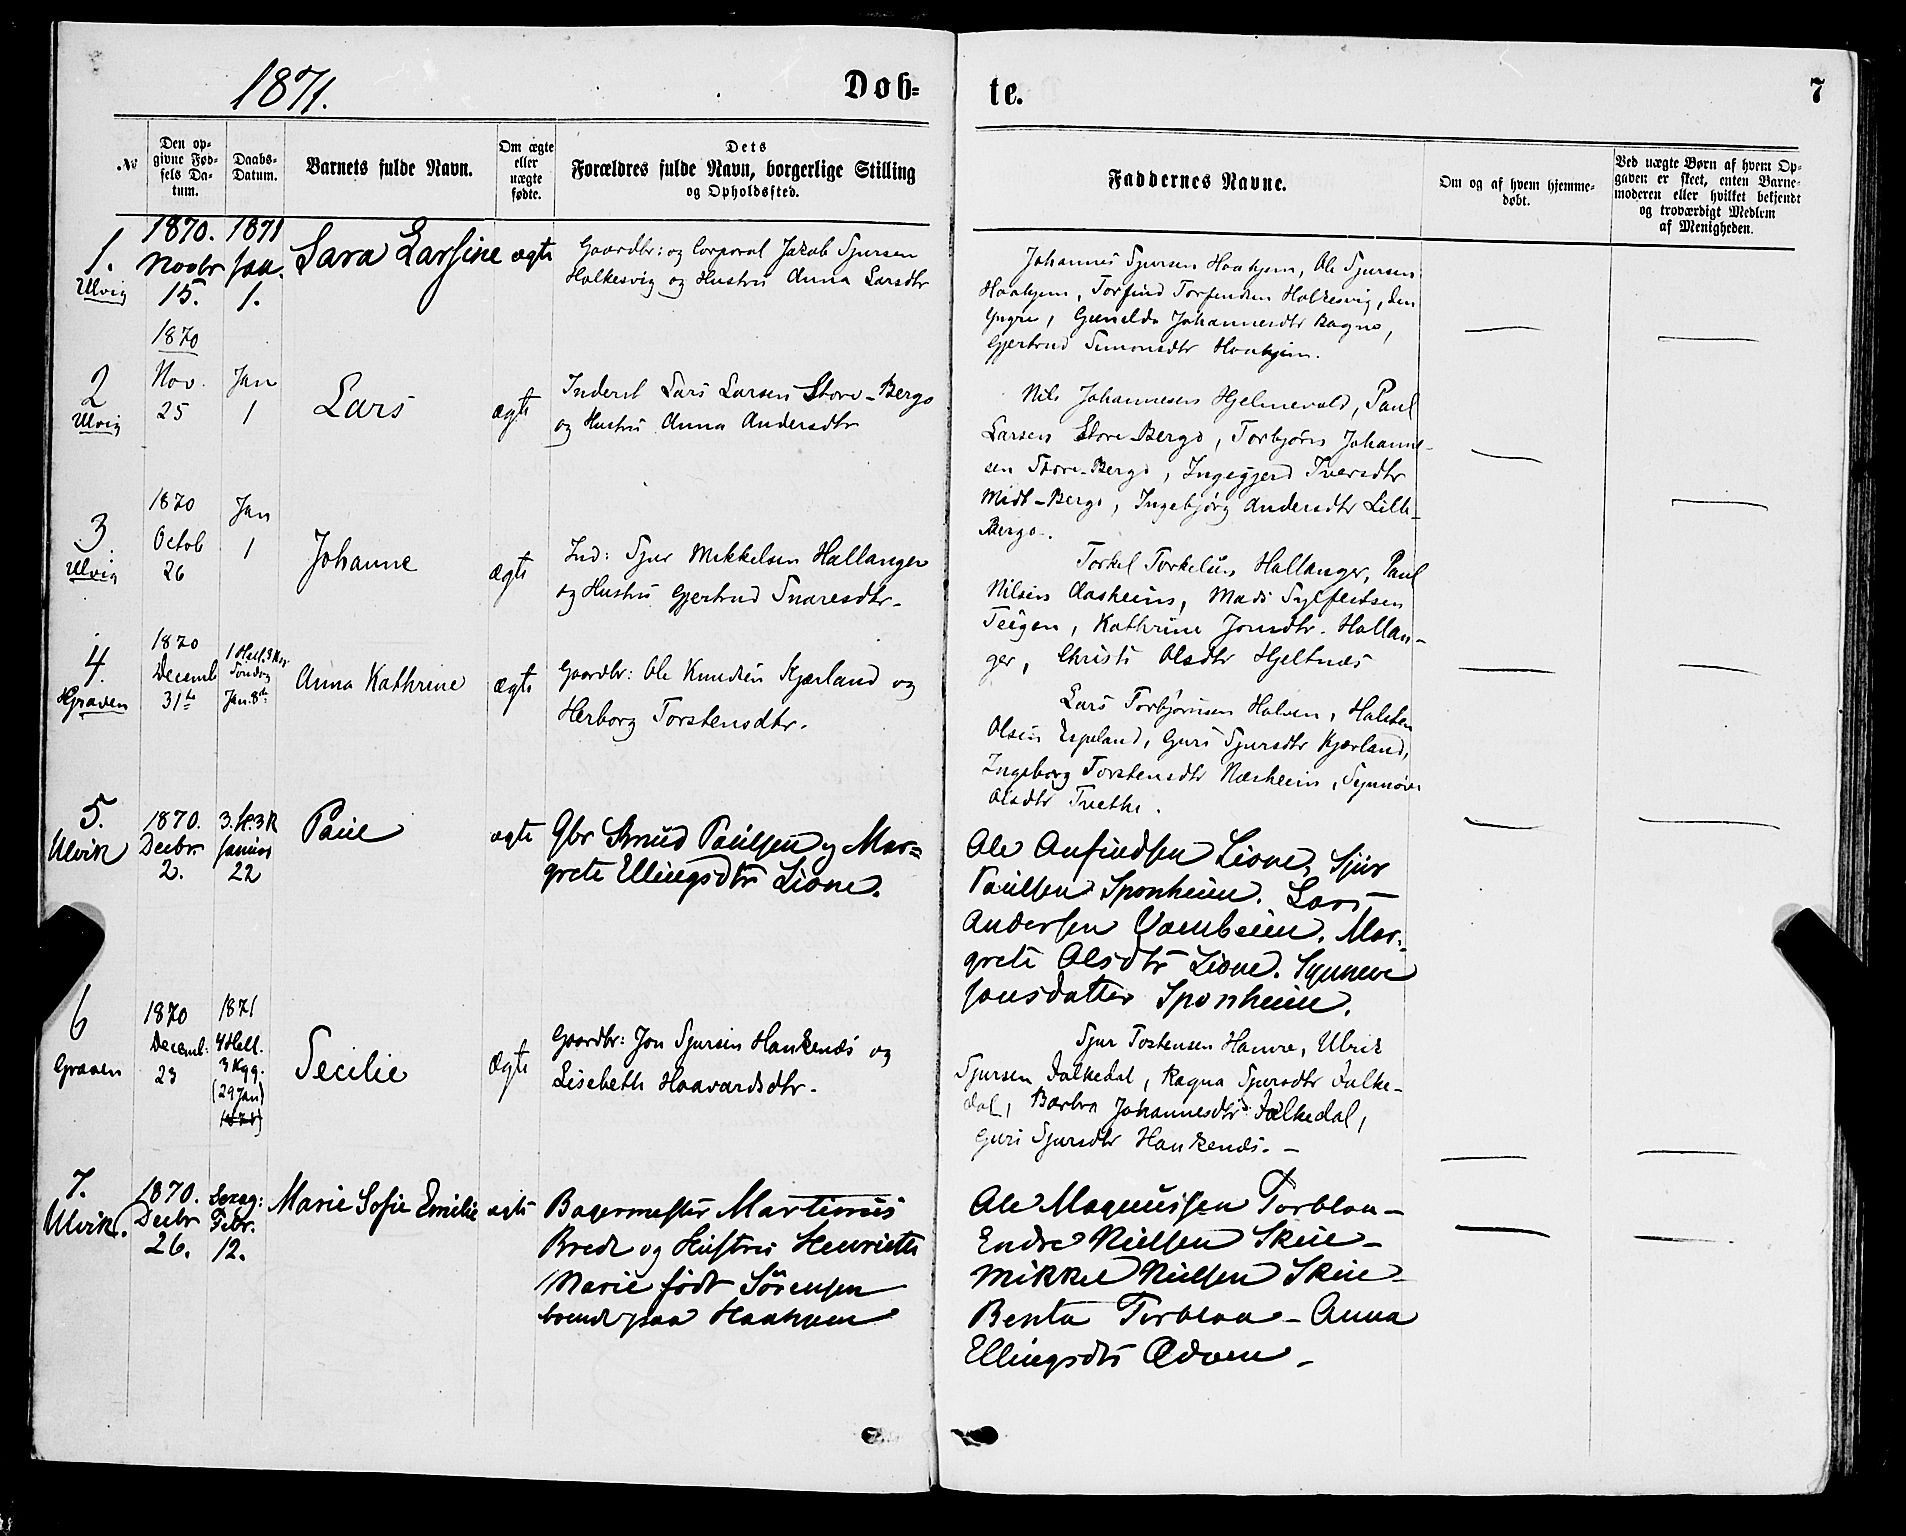 1871.
Döb=
te.
7
No
Den op-
givne Fød-
sels Da-
tum.
Daabs-
Datum.
Barnets fulde Navn.
Om ægte
eller
uægte
fødte.
Dets
Forældres fulde Navn, borgerlige Stilling
og Opholdssted.
Faddernes Navne.
Om og af hvem hjemme-
døbt.
Ved uægte Børn af hvem Op-
gaven er skeet, enten Barne-
moderen eller hvilket bekjendt
og troværdigt Medlem
af Menigheden.
1.
Ulvig
1870.
Novbr
15.
1871
Jan.
1.
Sara Larsine
ægte
Gaardbr: og Corporal Jakob Sjursen
Halkesvig og Hustru Anna Larsdtr
Johannes Sjursen Haahjem, Ole Sjursen
Haahjem, Torfind Torfindsen Halkesvig, den
Yngre, Gunilda Johannesdtr Bagne,
Gjertrud Simonsdtr Haahjem.
2
Ulvig
1870
Nov.
25
Jan
1
Lars
ægte
Inderst Lars Larsen Store-Berge
og Hustru Anna Andersdtr
Nils Johannesen Hjelmevold, Paul
Larsen Store Berge, Torbjörn Johanne-
sen Store-Berge, Ingegjerd Iversdtr
Midt-Berge, Ingebjörg Andersdtr Lille-
Berge.
3
Ulvig
1870
Octob
26
Jan
1
Johanne
ægte
Ind: Sjur Mikkelsen Hallanger
og Hustru Gjertrud Snaresdtr.
Torkel Torkelsen Hallanger, Paul
Nilsen Aasheim, Mads Sylfestsen
Teigen, Kathrine Jonsdtr. Hallan-
ger, Christi Olsdtr Hjeltnæs
4.
Graven
1870
Decemb
31te
1 Hell. 3 Kg
Söndag
Jan. 8de
Anna Kathrine
ægte
Gaardbr: Ole Knudsen Kjærland og
Herborg Torstensdtr.
Lars Torbjörnsen Halven, Halsten
Olsen Espeland, Guri Sjursdtr Kjærland,
Ingeborg Torstensdtr Næsheim, Synnöve
Olsdtr Tvethe.
5.
Ulvik
1870.
Decbr.
2.
3. S. 3 K
Januar
22
Paul
ægte
Gbr Knud Paulsen og Mar=
grete Ellingsdtr Lione.
Ole Anfindsen Lione, Sjur
Paulsen Sponheim. Lars
Andersen Vambeim. Mar-
grete Olsdtr Lione. Synneve
Jonsdatter Sponheim.
6
Graven
1870
Decemb:
23
1871
4 Hell.
3 Kgg.
(29 Jan)
Secilie
Ægte
Gaardbr: Jon Sjursen Haukenæs og
Lisebeth Haavardsdtr.
Sjur Tostensen Hamre, Ulrik
Sjursen Falkedal, Ragna Sjursdtr Falke-
dal, Barbra Johannesdtr Falkedal,
Guri Sjursdtr Haukenæs. -
7.
Ulvik.
1870.
Decbr
26.
Sexag:
Febr.
12.
Marie Sofie Emilie
ægte
Bagermester Martinus
Brede og Hustru Henriette
Marie født Sørensen
boende paa Haahjem
Ole Magnussen Torblaa -
Endre Nielsen Skeie -
Mikkel Nielsen Skeie -
Benta Torblaa - Anna
Ellingsdtr Ødven -